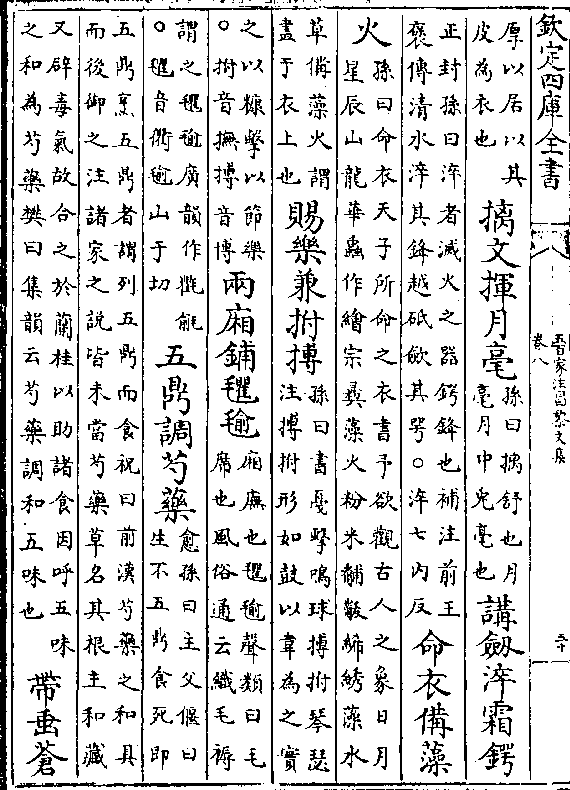 欽定四庫全書
五百家注昌黎文集
卷八
厚以居以其
皮為衣也
摛文揮月毫
孫曰摛舒也月
毫月中兎毫也
講劒淬霜鍔
正封孫曰淬者滅火之器鍔鋒也補注前王
褒傳清水淬其鋒越砥斂其咢○淬七内反
命衣備藻
火
孫曰命衣天子所命之衣書予欲觀古人之象日月
星辰山龍華蟲作繪宗彛藻火粉米黼黻絺綉藻水
草備藻火謂
盡于衣上也
賜樂兼拊搏
孫曰書戛擊鳴球搏拊琴瑟
注搏拊形如鼓以韋為之實
之以糠擊以節樂
○拊音撫搏音博
兩廂鋪氍毹
廂廡也氍毹聲類曰毛
席也風俗通云織毛褥
謂之氍毹廣韻作
○氍音衢毹山于切
五鼎調芍藥
愈孫曰主父偃曰
生不五鼎食死即
五鼎烹五鼎者謂列五鼎而食祝曰前漢芍藥之和具
而後御之注諸家之說皆未當芍藥草名其根主和藏
又辟毒氣故合之於蘭桂以助諸食因呼五味
之和為芍藥樊曰集韻云芍藥調和五味也
帶垂蒼